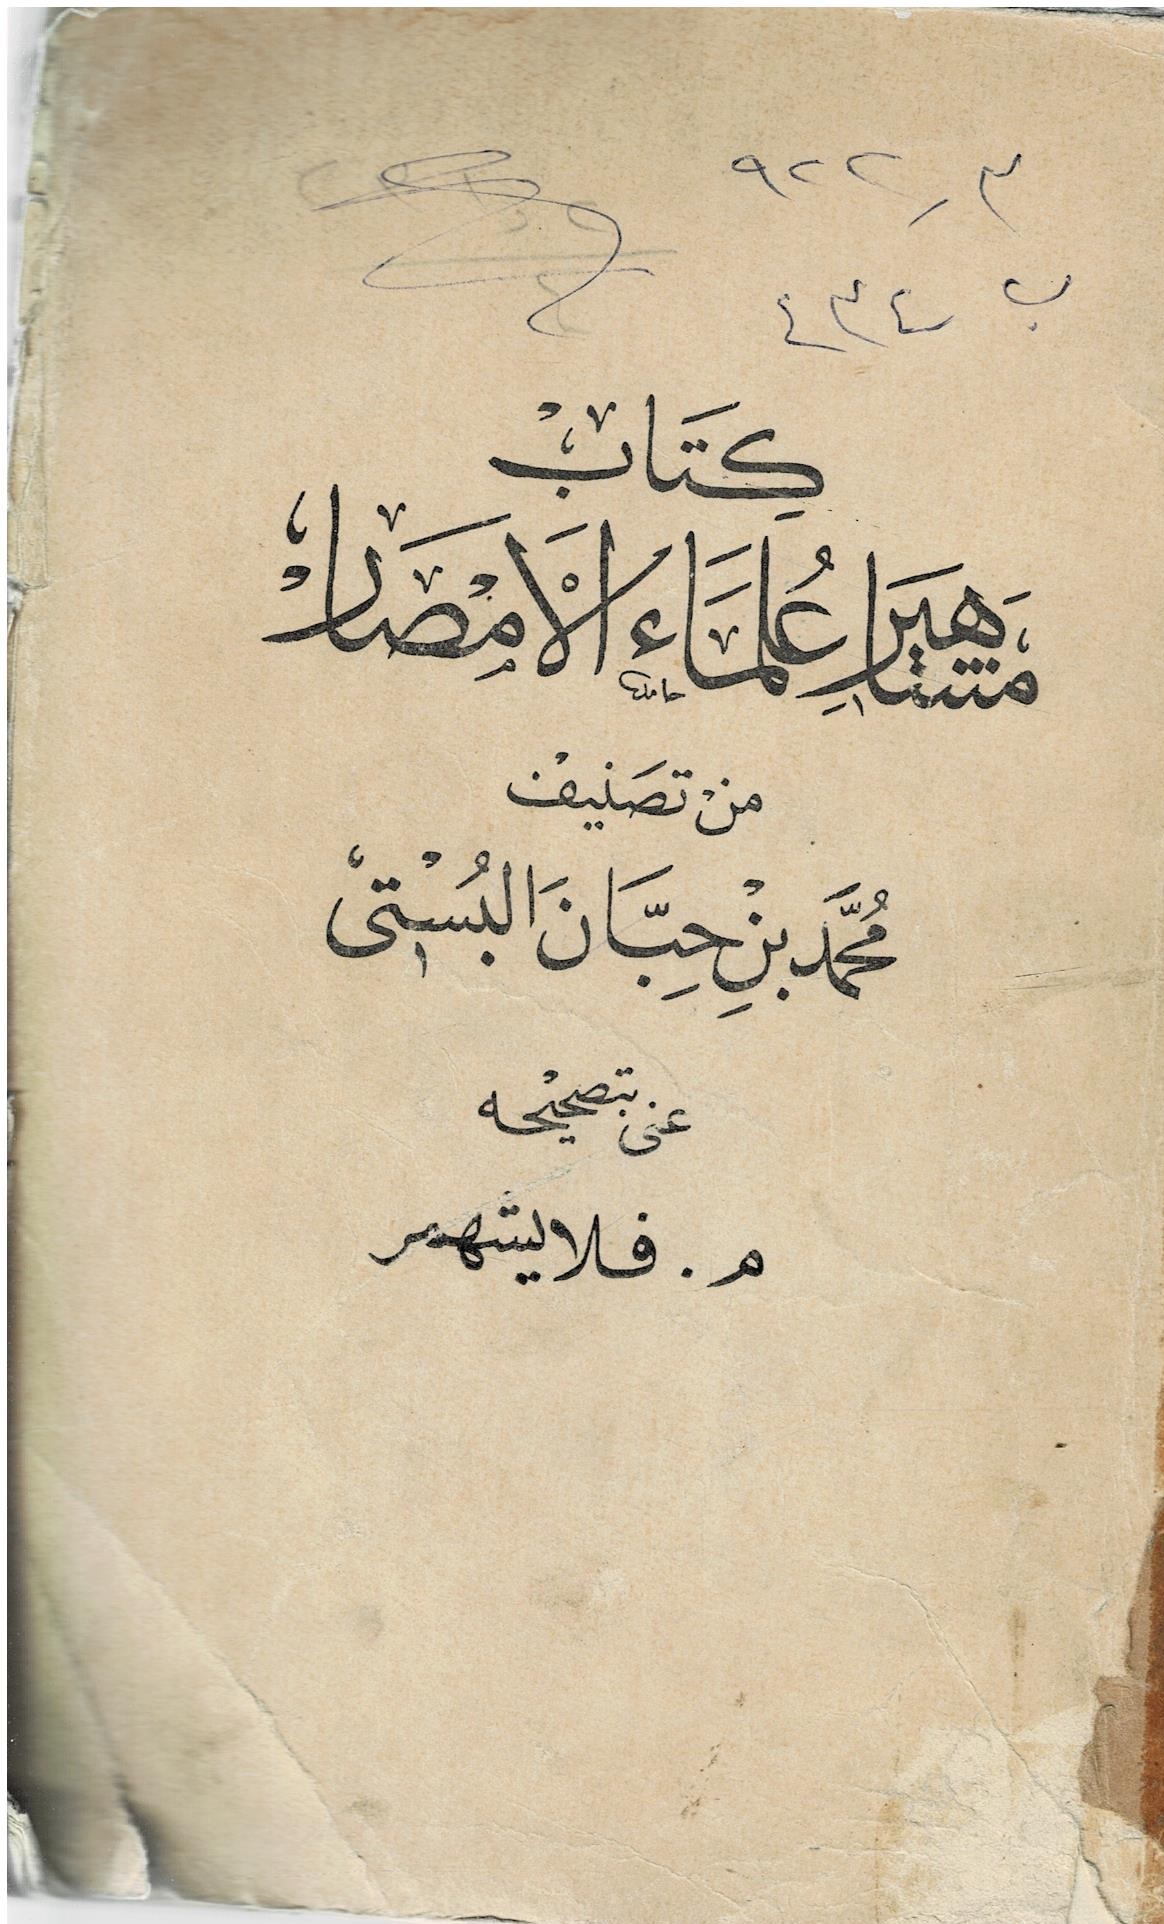 ٩٢٢٫٣
ب ٤٣٤
كِتَابْ
مَشَاهِيَرِ عُلَمَاءِ الْأَمْصَارْ
حامد
مِنْ تَصَنِيفْ
مُحَمَّد بْنِ حِبَّانَ البُسْتِى
عنى بتصحيْحه
م . فلايشهمر